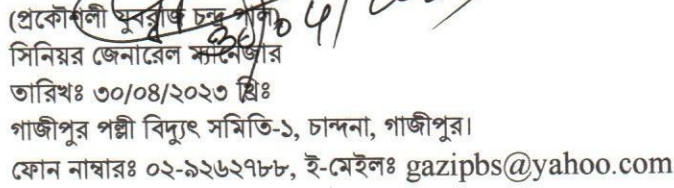 (প্রকৌশলী যুবরাজ চন্দ্র পাল)
সিনিয়র জেনারেল ম্যানেজার
তারিখঃ ৩০/০৪/২০২৩ খ্রিঃ
গাজীপুর পল্লী বিদ্যুৎ সমিতি-১, চান্দনা, গাজীপুর।
ফোন নাম্বারঃ ০২-৯২৬২৭৮৮, ই-মেইলঃ gazipbs@yahoo.com